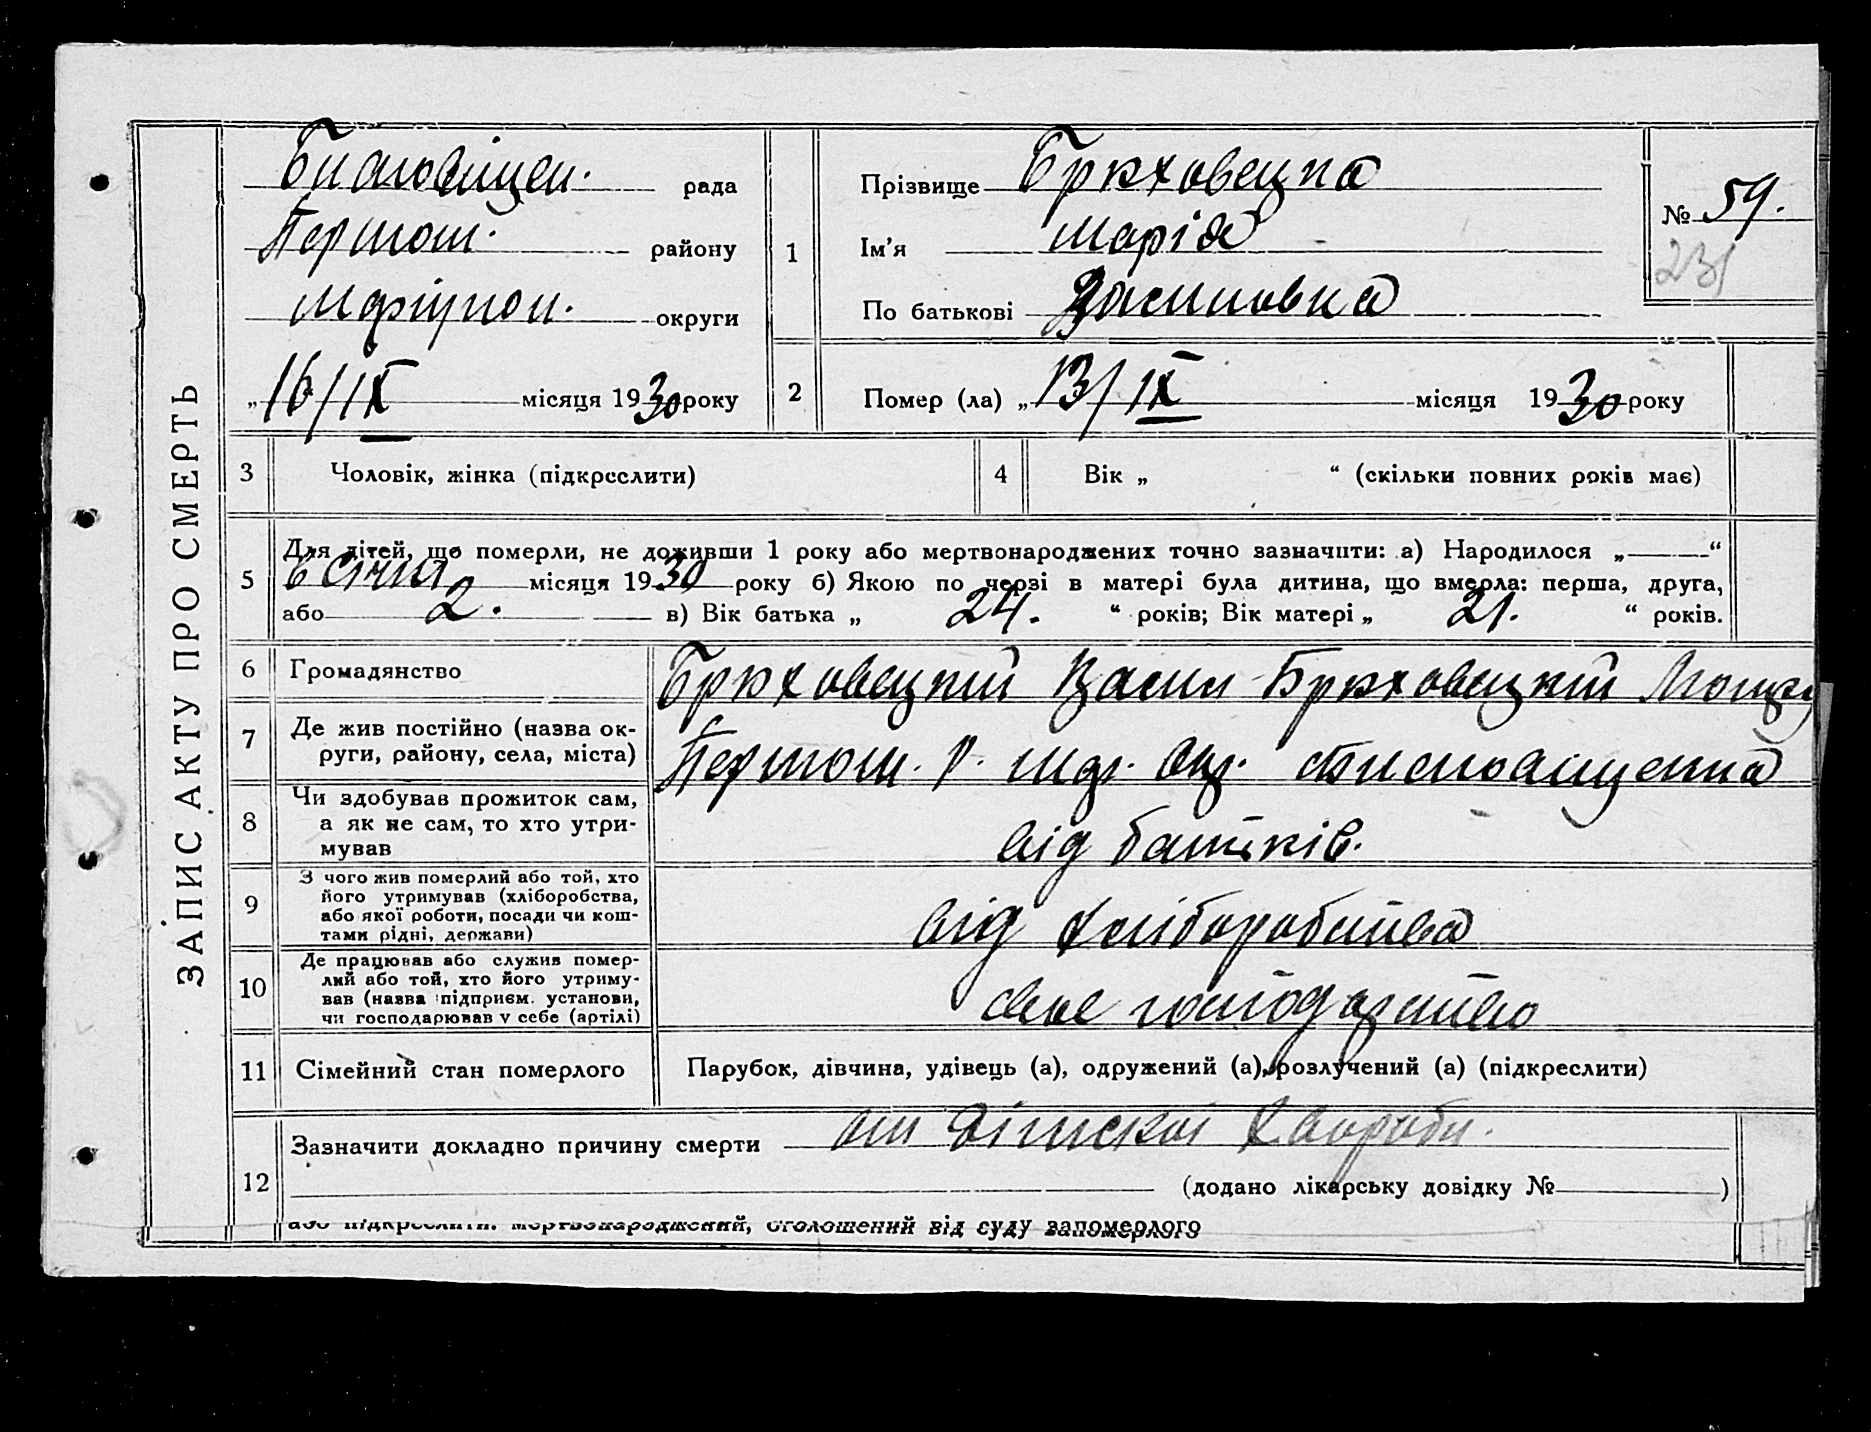 ЗАПИС АКТУ ПРО СМЕРТЬ
Благовіщен. рада
Першот. району
Маріупол. округи
„16/IX місяця 1930 року
1
Прізвище Брюховецка
Ім'я Марія
По батькові Василовна
№ 59.
231
2
Помер (ла) „13/IX місяця 1930 року
3 Чоловік, жінка (підкреслити)
4 Вік „ “ (скільки повних років має)
5 Для дітей, що померли, не доживши 1 року або мертвонароджених точно зазначити: а) Народилося „ “
6 січня місяця 1930 року б) Якою по черзі в матері була дитина, що вмерла: перша, друга,
або 2. в) Вік батька „ 24. “ років; Вік матері „ 21. “ років.
6 Громадянство
Брюховецкий Васил Брюховецкий
7 Де жив постійно (назва ок-
руги, району, села, міста)
Першот. р. Мар. окр.
8 Чи здобував прожиток сам,
а як не сам, то хто утри-
мував
від батьків.
9 З чого жив померлий або той, хто
його утримував (хліборобства,
або якої роботи, посади чи кош-
тами рідні, держави)
від хліборобства
10 Де працював або служив помер-
лий або той, хто його утриму-
вав (назва підприєм. установи,
чи господарював у себе (артілі)
своє господарство
11 Сімейний стан померлого
Парубок, дівчина, удівець (а), одружений (а), розлучений (а) (підкреслити)
12 Зазначити докладно причину смерти от дітскої хвороби.
(додано лікарську довідку № )
або підкреслити: мертвонароджений, оголошений від суду запомерлого